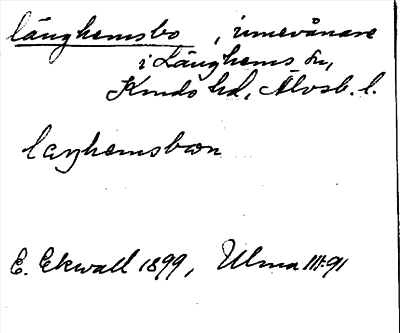 länghemsbo, innevånare
i Länghems sn,
Kinds hd, Älvsb. l.
laŋhemsbon
E. Ekwall 1899, Ulma 111:91